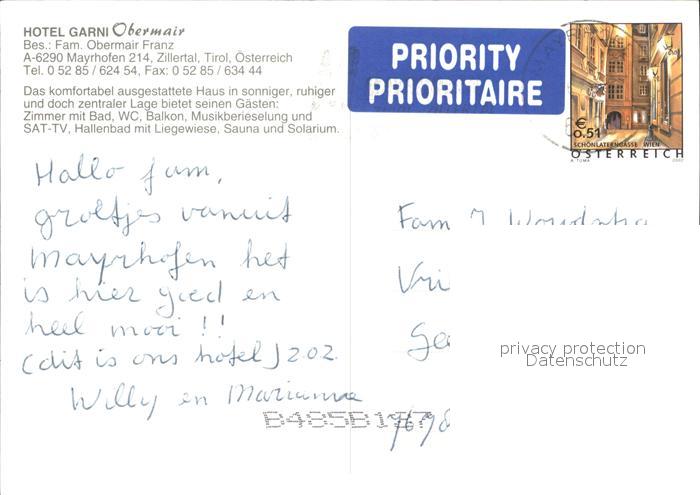 HOTEL GARNI Obermair
Bes.: Fam. Obermair Franz
A-6290 Mayrhofen 214, Zillertal, Tirol, Österreich
Tel. 0 52 85 / 624 54, Fax: 0 52 85 / 634 44
Das komfortabel ausgestattete Haus in sonniger, ruhiger
und doch zentraler Lage bietet seinen Gästen:
Zimmer mit Bad, WC, Balkon, Musikberieselung und
SAT-TV, Hallenbad mit Liegewiese, Sauna und Solarium.
PRIORITY
PRIORITAIRE
€
0.51
SCHÖNLATERNGASSE WIEN
ÖSTERREICH
A. TUMA 2002
Hallo fam,
groetjes vanuit
Mayrhofen het
is hier goed en
heel mooi !!
(dit is ons hotel) 202.
Willy en Marianne
Fam
Vri
Ge
privacy protection
Datenschutz